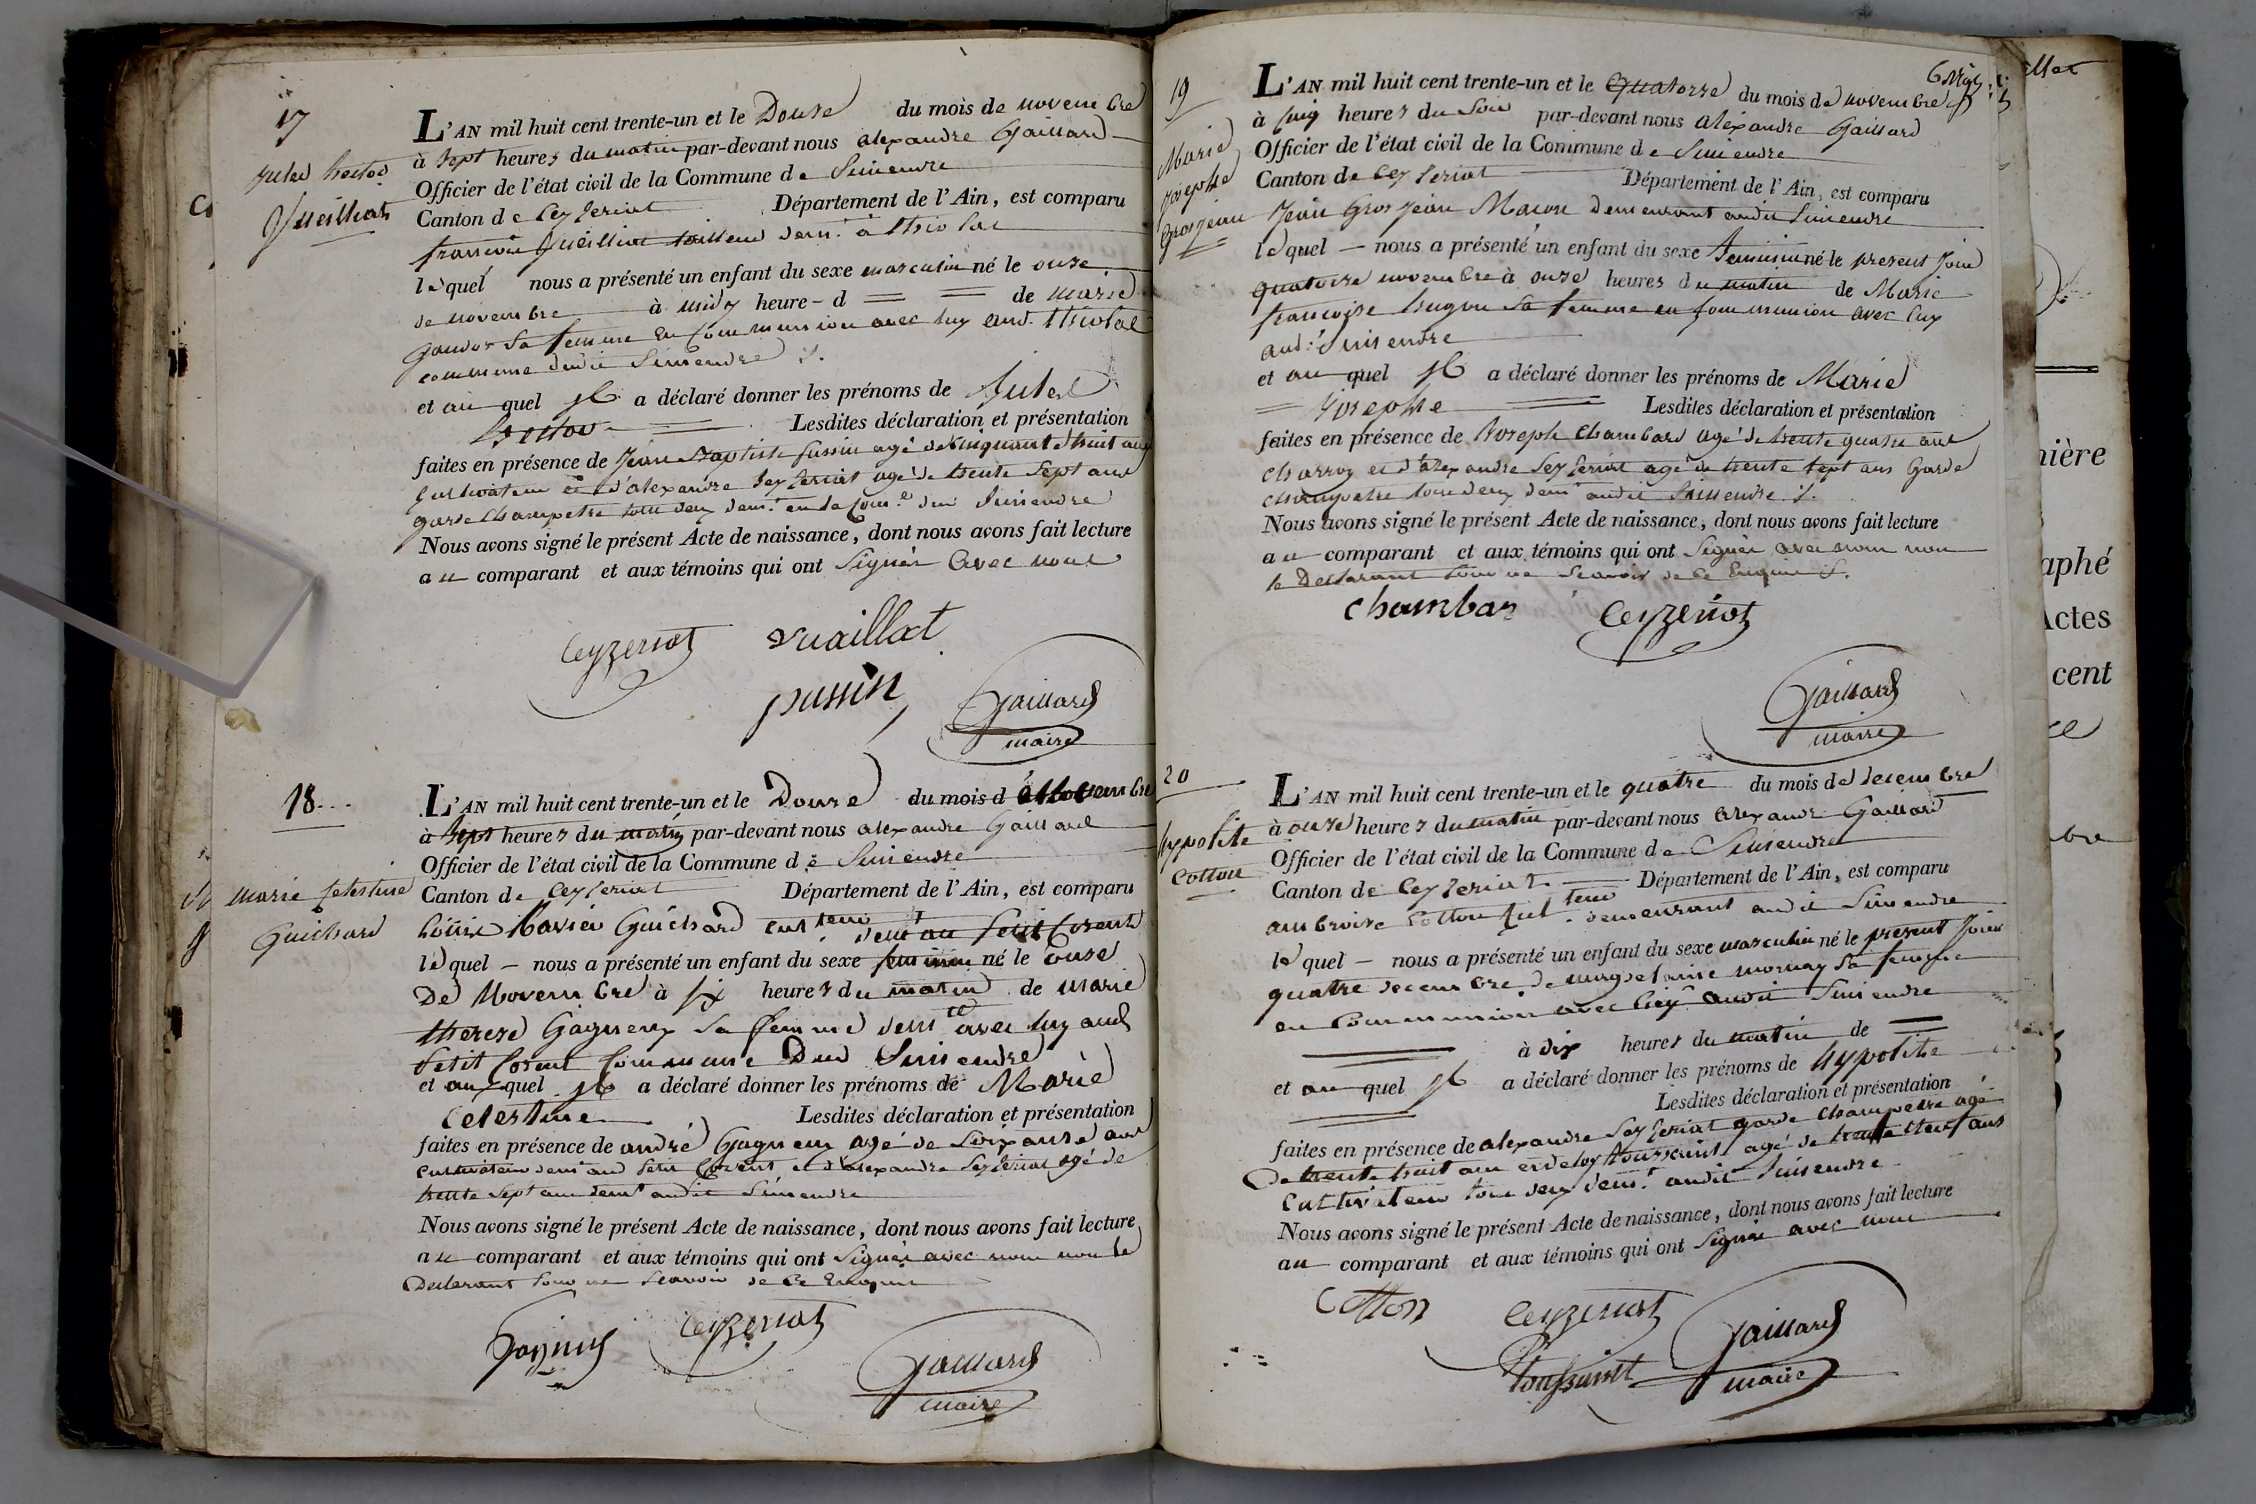 17
Jules hector
L'AN mil huit cent trente-un et le Douze du mois de novembre
à sept heures du matin par-devant nous alexandre Gaillard
Officier de l'état civil de la Commune de Simendre
Canton de Ceyzeriat Département de l'Ain, est comparu
lequel nous a présenté un enfant du sexe masculin né le onze
de novembre à midy heure - d de marie
sa femme en communion avec luy
commune dudit Simendre
et au quel il a déclaré donner les prénoms de Jules
hector Lesdites déclaration et présentation
faites en présence de Jean Baptiste agé de cinquante huit ans
Cultivateur et d'alexandre Seyzeriat agé de trente sept ans
garde champetre tous deux dem.t en la Com.e dud Simendre
Nous avons signé le présent Acte de naissance, dont nous avons fait lecture
au comparant et aux témoins qui ont Signér avec nous
Ceyzeriat vuaillat
Gaillard
maire
18
marie Celestine
Guichard
L'AN mil huit cent trente-un et le Douze du mois d novembre
à Sept heures du matin par-devant nous alexandre Gaillard
Officier de l'état civil de la Commune de Simendre
Canton de Ceyzeriat Département de l'Ain, est comparu
Guichard dem.t au Petit Corent
lequel - nous a présenté un enfant du sexe feminin né le onze
De Novembre à six heures du matin de marie
therese Gagneux sa femme dem.te avec luy aud
Petit Corent Commune Dud Simendre
et au quel il a déclaré donner les prénoms de Marie
Celestine Lesdites déclaration et présentation
faites en présence de andré Gagneux agé de Soixante ans
cultivateur dem.t aud Petit Corent et d'alexandre Seyzeriat agé de
trente sept ans dem.t audit Simendre
Nous avons signé le présent Acte de naissance, dont nous avons fait lecture
au comparant et aux témoins qui ont Signér avec nous non le
Declarant pour ne Scavoir de ce Enquis
Ceyzeriat
Gaillard
maire
19
Marie
Josephe
Grosjean
L'AN mil huit cent trente-un et le Quatorze du mois de novembre
à Cinq heures du Soir par-devant nous alexandre Gaillard
Officier de l'état civil de la Commune de Simendre
Canton de Ceyzeriat Département de l'Ain, est comparu
Jean Gros jean Macon demeurant audit Simendre
lequel - nous a présenté un enfant du sexe feminin né le present Jour
quatorze novembre à onze heures du matin de Marie
francoise sa femme en communion avec luy
aud: Simendre
et au quel il a déclaré donner les prénoms de Marie
Josephe Lesdites déclaration et présentation
faites en présence de Joseph Chambard agé de trente quatre ans
charron et d'alexandre Seyzeriat agé de trente sept ans Garde
champetre tous deux dem.t audit Simendre
Nous avons signé le présent Acte de naissance, dont nous avons fait lecture
au comparant et aux témoins qui ont Signér avec nous non
le Declarant pour ne Scavoir de ce Enquis
Ceyzeriat
Gaillard
maire
20
hypolite
Cotton
L'AN mil huit cent trente-un et le quatre du mois de decembre
à onze heures du matin par-devant nous alexandre Gaillard
Officier de l'état civil de la Commune de Simendre
Canton de Ceyzeriat Département de l'Ain, est comparu
ambroise Cotton demeurant audit Simendre
lequel - nous a présenté un enfant du sexe masculin né le present Jour
quatre decembre de magdelaine mornay sa femme
en Communion avec luy audit Simendre
à dix heures du matin de
et au quel il a déclaré donner les prénoms de hypolite
Lesdites déclaration et présentation
faites en présence de alexandre Seyzeriat garde champetre agé
De trente huit ans et deloy toussaint agé de ans
Cultivateur tous deux dem.t audit Simendre
Nous avons signé le présent Acte de naissance, dont nous avons fait lecture
au comparant et aux témoins qui ont Signér avec nous
Cotton Ceyzeriat
toussaint
Gaillard
maire
nière
aphé
Actes
cent